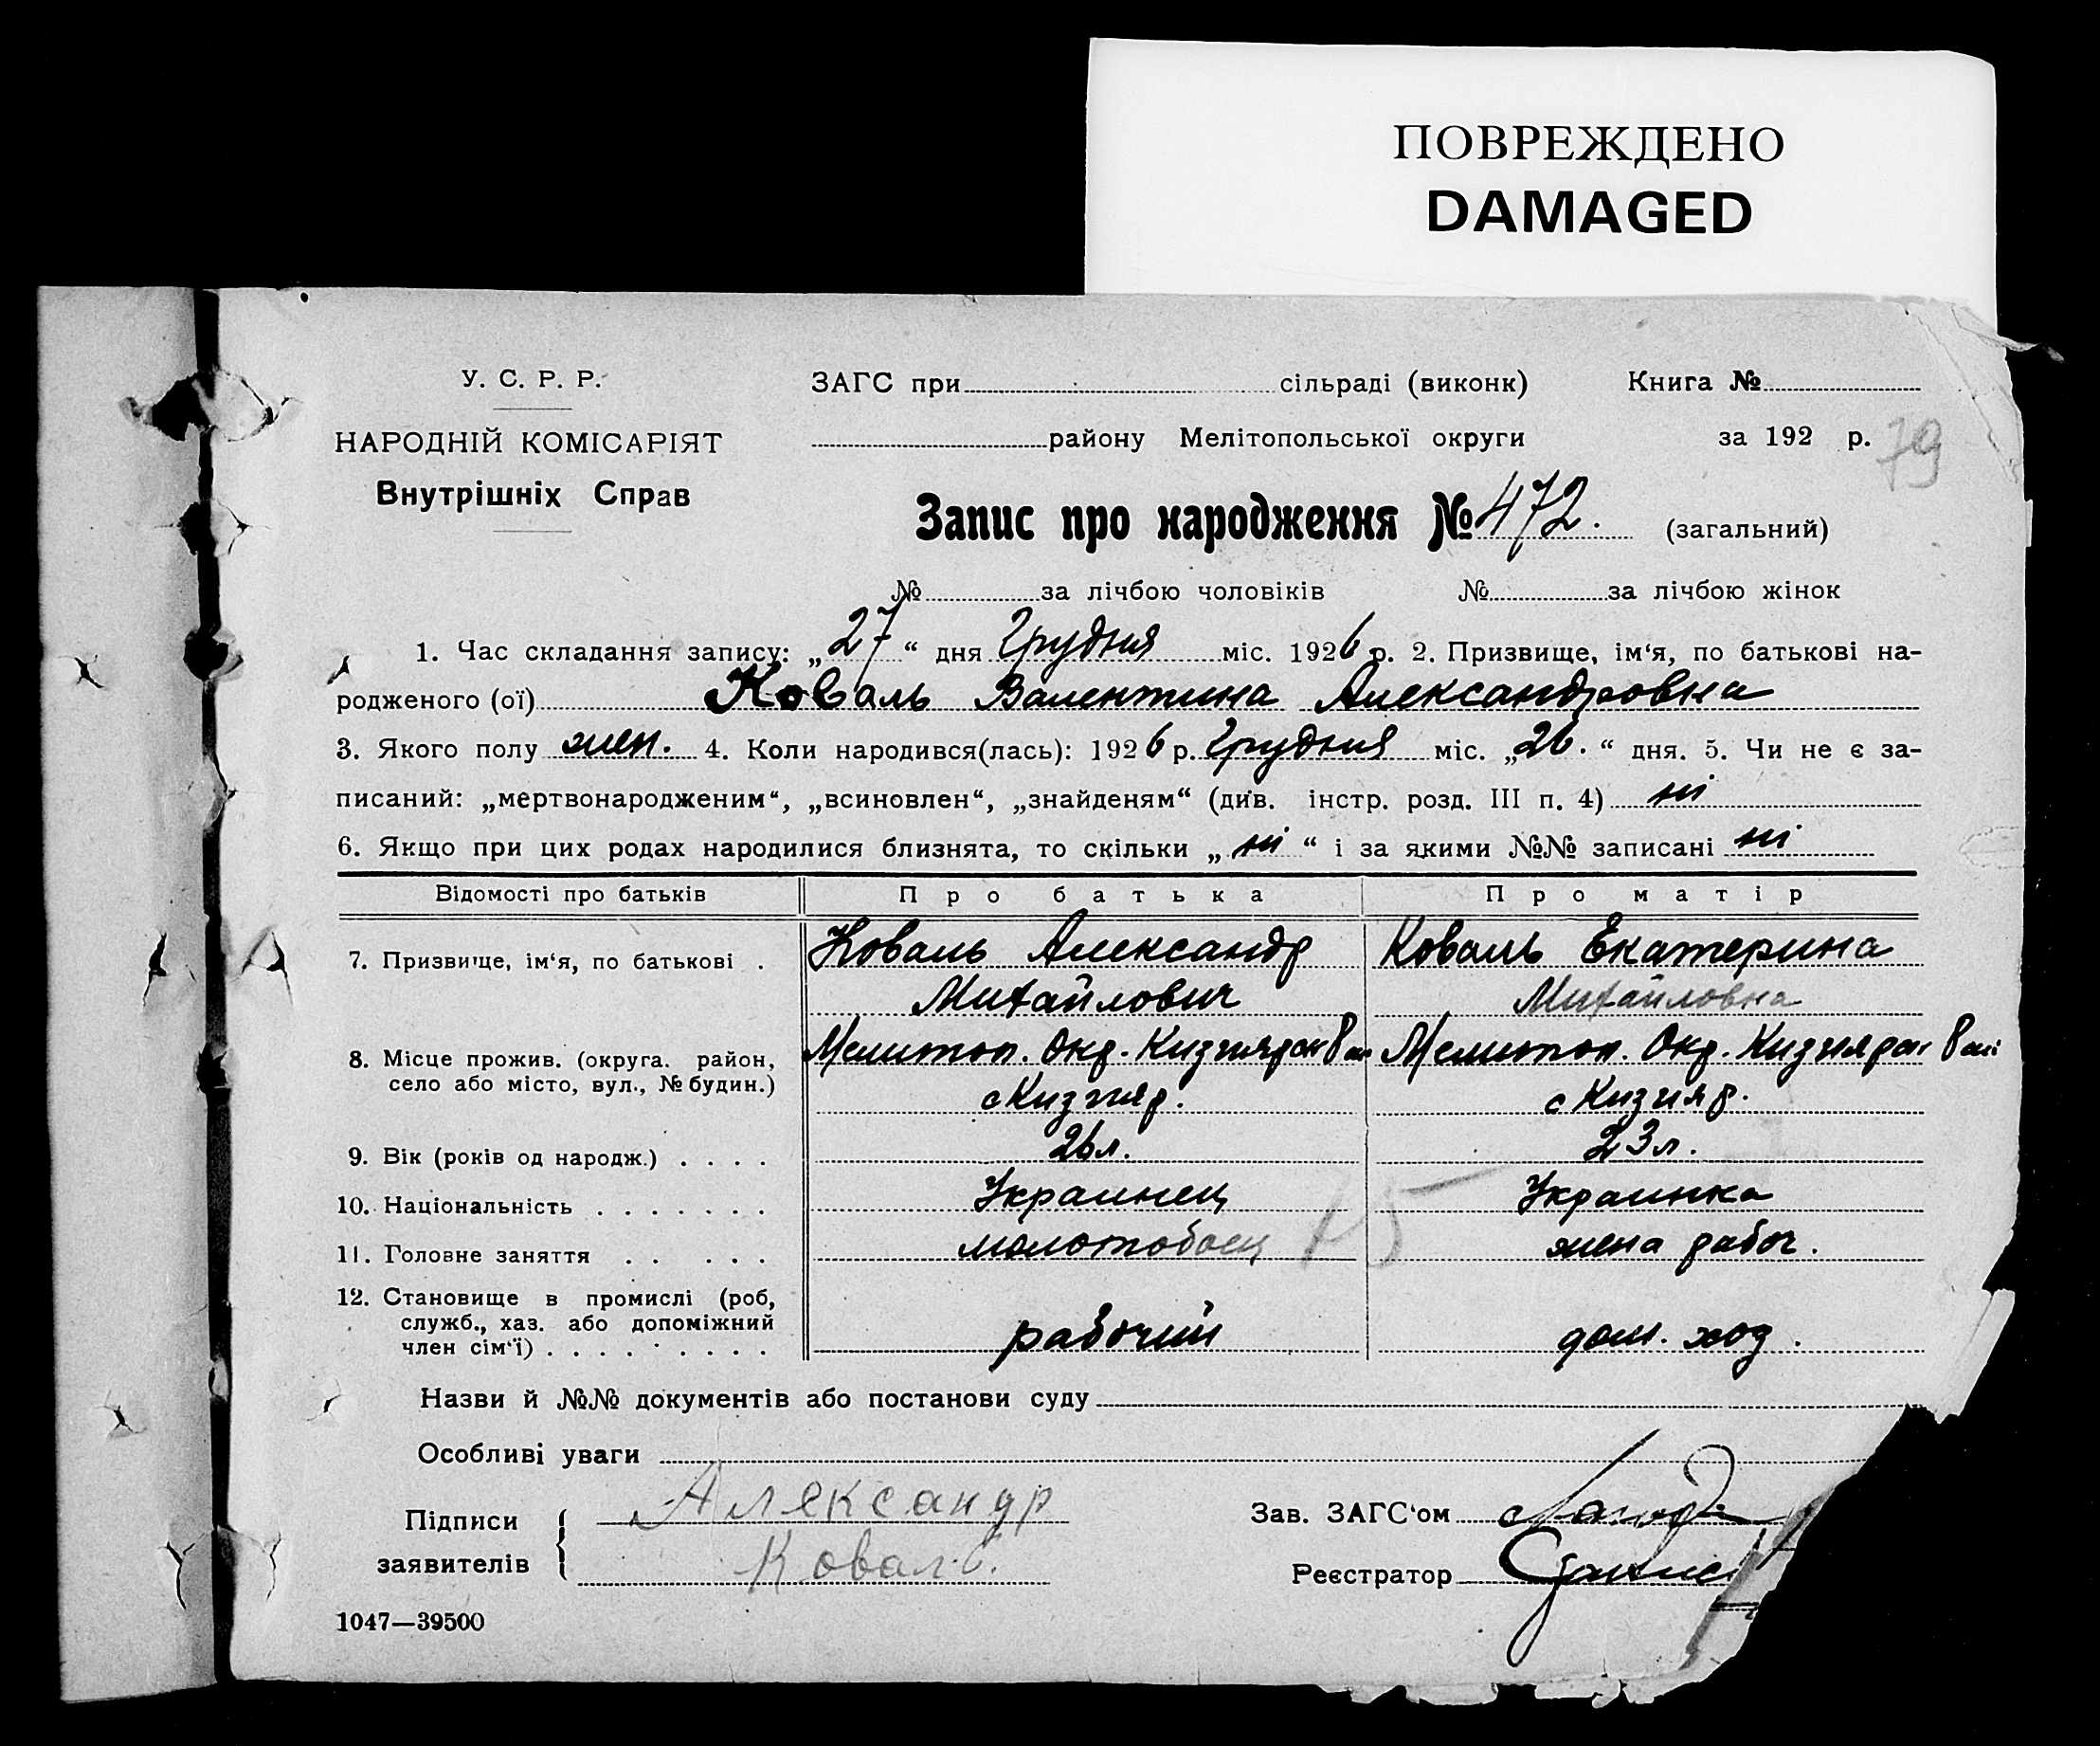 ПОВРЕЖДЕНО
DAMAGED
У. С. Р. Р.
ЗАГС при сільраді (виконк) Книга №
НАРОДНІЙ КОМІСАРІЯТ
району Мелітопольської округи за 192 р. 79
Внутрішніх Справ
Запис про народження № 472. (загальний)
№ за лічбою чоловіків № за лічбою жінок
1. Час складання запису: „27“ дня Грудня міс. 1926 р. 2. Призвище, ім‘я, по батькові на-
родженого (ої) Коваль Валентина Александровна
3. Якого полу жен. 4. Коли народився(лась): 1926 р. Грудня міс. „26.“ дня. 5. Чи не є за-
писаний: „мертвонародженим“, „всиновлен“, „знайденям“ (див. інстр. розд. III п. 4) ні
6. Якщо при цих родах народилися близнята, то скільки „ні“ і за якими №№ записані ні
Відомості про батьків Про батька Про матір
7. Призвище, ім‘я, по батькові . Коваль Александр Коваль Екатерина
Михайлович Михайловна
8. Місце прожив. (округа. район, Мелитоп. Окр. Мелитоп. Окр.
село або місто, вул., № будин.) с Кизияр. с Кизияр.
9. Вік (років од народж.) . . . . 26 л. 23 л.
10. Національність . . . . . . . Украинец Украинка
11. Головне заняття . . . . . молотобоец 15 жена рабоч.
12. Становище в промислі (роб,
служб., хаз. або допоміжний
член сім‘ї) . . . . . . . . . рабочий дом. хоз.
Назви й №№ документів або постанови суду
Особливі уваги
Підписи Александр
заявителів Коваль.
Зав. ЗАГС‘ом
Реєстратор
1047—39500